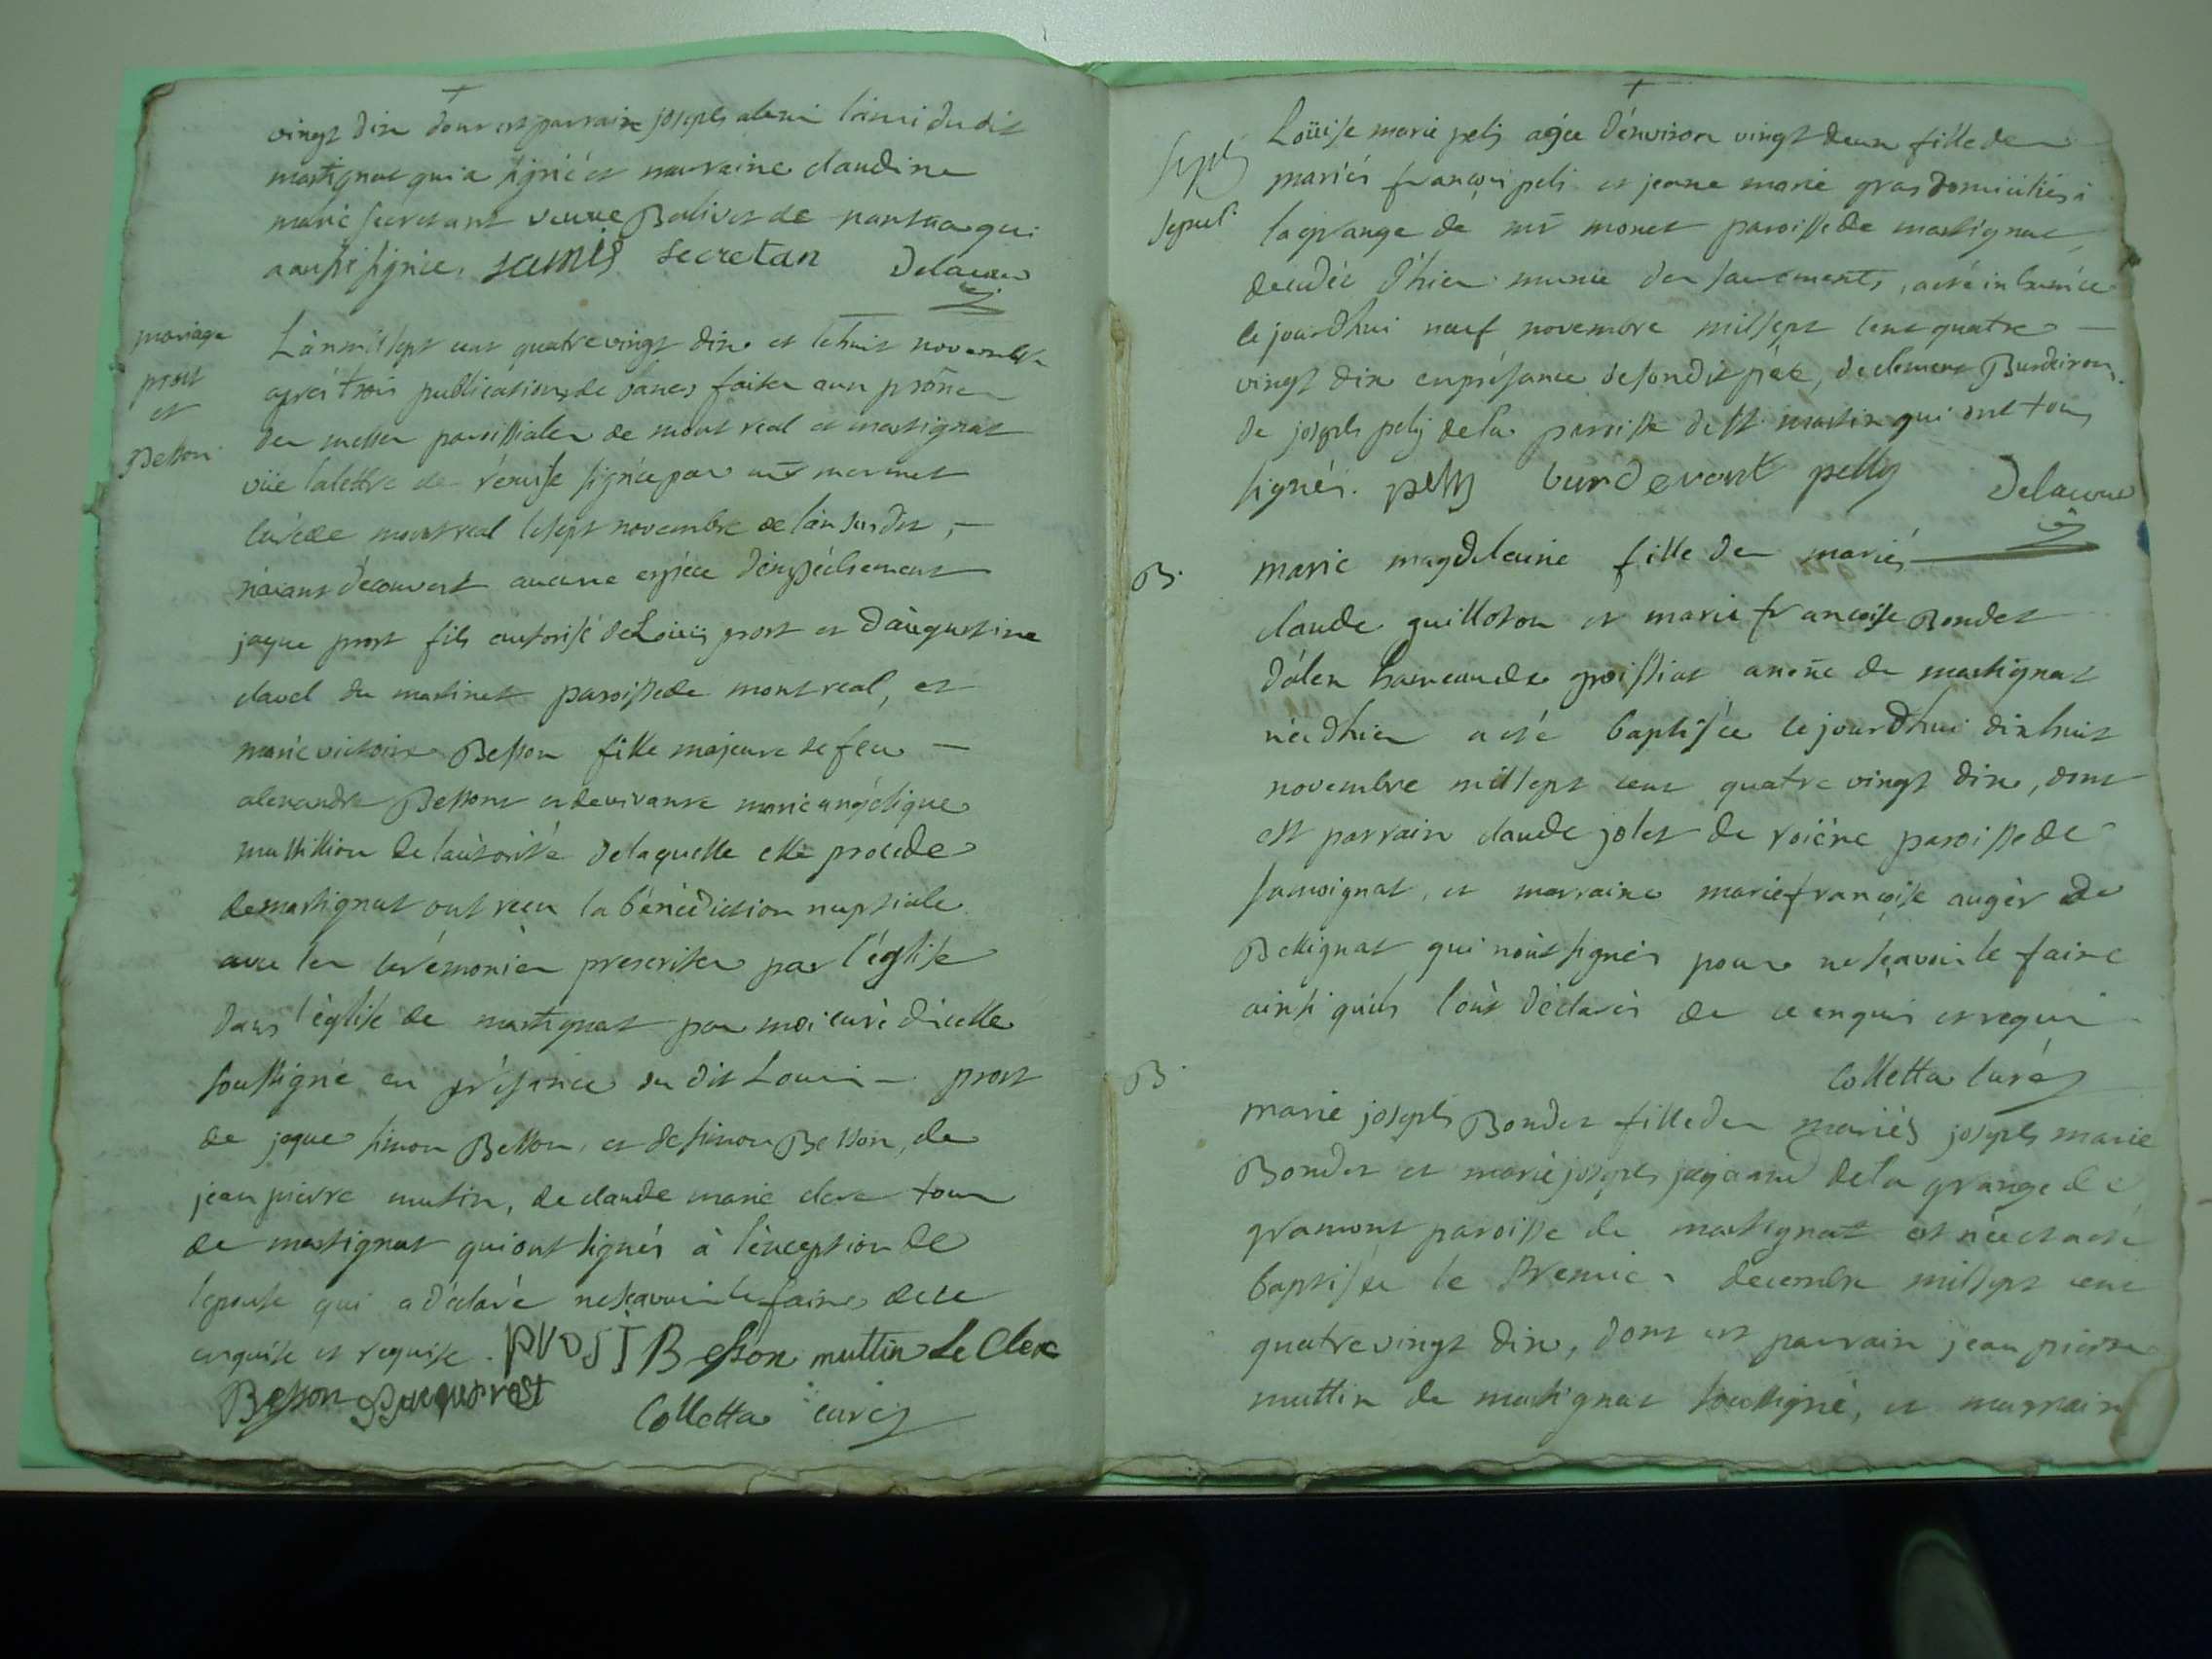 vingt dix dont est parrain joseph alexi lami du dit
martignat qui a signé et marraine claudine
marie secretant veuve Balivet de nantua qui
a aussi signée. lamis secretan Delacour
mariage
prost
et
Besson
L'an mil sept cent quatre vingt dix et le huit novembre
après trois publications de bancs faites aux prônes
des messes paroissiales de mont real et martignat
vüe la lettre de rémise signée par mr mermet
curé de montreal le sept novembre de l'an susdit, —
n'aiant découvert aucune espéce d'empéchement
jaque prost fils autorisé de Loüis prost et d'augustine
clavel du martinet paroisse de mont real, et
marie victoire Besson fille majeure de feu —
alexandre Besson et de vivante marie angélique
massillion de l'autorité de laquelle elle procéde
de martignat ont reçu la bénédiction nuptiale
avec les cerémonies prescrites par l'église
dans l'église de martignat par moi curé d'icelle
soussigné en présence du dit Louis — prost
de jaque simon Besson, et de simon Besson, de
jean pierre mutin, de claude marie clerc tous
de martignat qui ont signés à l'exception de
l'epouse qui a déclaré ne sçavoir le faire de ce
enquise et requise. prost Besson muttin Le Clerc
Besson Jaque prost
Colletta curé
Sept
sepult.
Loüise marie pelij agée d'environ vingt deux fille des
mariés françois peli et jeanne marie gras domiciliés à
la grange de mr monet paroisse de martignat
decedée d'hier munie des sacrements, a été inhumée
ce jourd'hui neuf novembre mil sept cent quatre —
vingt dix en présance de son dit pére, de clement Burdeiron,
de joseph pelij de la paroisse de st martin qui ont tous
signés. pelly burdevront pelly Delacour
B.
marie magdelaine fille des mariés
claude guilloton et marie françoise Bondet
d'alex hameau de groissiat annexe de martignat
née d'hier a été baptisée ce jourd'hui dix huit
novembre mil sept cent quatre vingt dix, dont
est parrain claude jolet de voiére paroisse de
samoignat, et marraine marie françoise augér de
Bellignat qui n'ont signés pour ne sçavoir le faire
ainsi qu'ils l'ont déclarés de ce enquis et requis
Colletta curé
B.
marie joseph Bondet fille des mariés joseph marie
Bondet et marie joseph jagaand de la grange de
gramont paroisse de martignat est née et a été
baptisée le Premier decembre mil sept cent
quatre vingt dix, dont est parrain jean pierre
muttin de martignat soussigné, et marraine